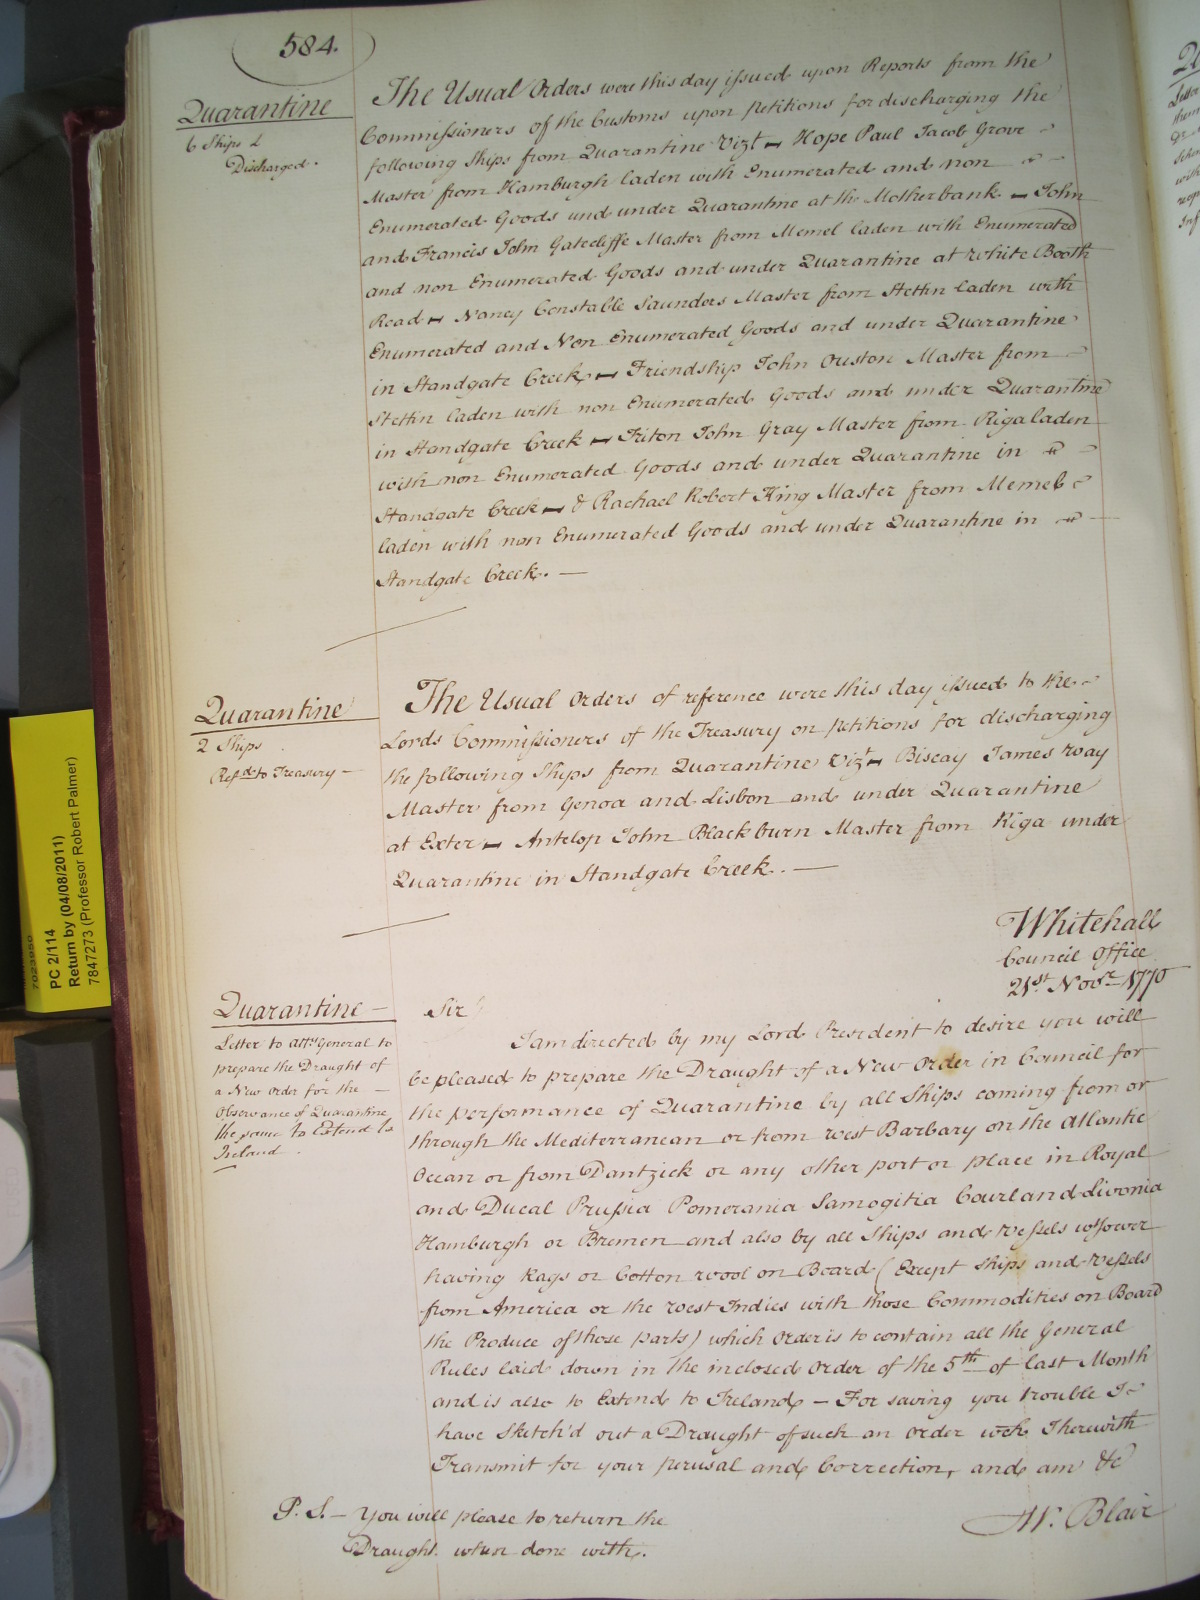 584.
Quarantine
6 Ships
Discharged.
The Usual Orders were this day issued upon Reports from the
Commissioners of the Customs upon Petitions for discharging the
following Ships from Quarantine Vizt. Hope Paul Jacob Grove
Master from Hamburgh laden with Enumerated and non
Enumerated Goods and under Quarantine at the Motherbank - John
and Francis John Gatecliffe Master from Memel laden with Enumerated
and non Enumerated Goods and under Quarantine at White Booth
Road - Nancy Constable Saunders Master from Stettin laden with
Enumerated and Non Enumerated Goods and under Quarantine
in Standgate Creek - Friendship John Ouston Master from
Stettin laden with non Enumerated Goods and under Quarantine
in Standgate Creek - Triton John Gray Master from Riga laden
with non Enumerated Goods and under Quarantine in
Standgate Creek - & Rachael Robert King Master from Memel
laden with non Enumerated Goods and under Quarantine in
Standgate Creek. -
Quarantine
2 Ships
Refd. to Treasury -
The Usual Orders of reference were this day issued to the
Lords Commissioners of the Treasury on Petitions for discharging
the following Ships from Quarantine Vizt. Biscay James Way
Master from Genoa and Lisbon and under Quarantine
at Exter - Antelop John Blackburn Master from Riga under
Quarantine in Standgate Creek. -
Whitehall
Council Office
21st. Novr. 1770
Quarantine -
Letter to Atty General to
prepare the Draught of
a New Order for the -
Observance of Quarantine
the same to Extend to
Ireland.
Sir
I am directed by my Lord President to desire you will
be pleased to prepare the Draught of a New Order in Council for
the performance of Quarantine by all Ships coming from or
through the Mediterranean or from West Barbary on the Atlantic
Ocean or from Dantzick or any other port or place in Royal
and Ducal Prussia Pomerania Samogitia Courland Livonia
Hamburgh or Bremen and also by all Ships and Vessels wsoever
having Rags or Cotton wool on Board (Except Ships and Vessels
from America or the West Indies with those Commodities on Board
the Produce of those parts) which Order is to contain all the General
Rules laid down in the inclosed Order of the 5th of last Month
and is also to Extend to Ireland - For saving you trouble I
have Sketch'd out a Draught of such an Order wch. I herewith
Transmit for your perusal and Correction, and am &c
W. Blair
P.S. - You will please to return the
Draught when done with.
PC 2/114
Return by (04/08/2011)
7847273 (Professor Robert Palmer)